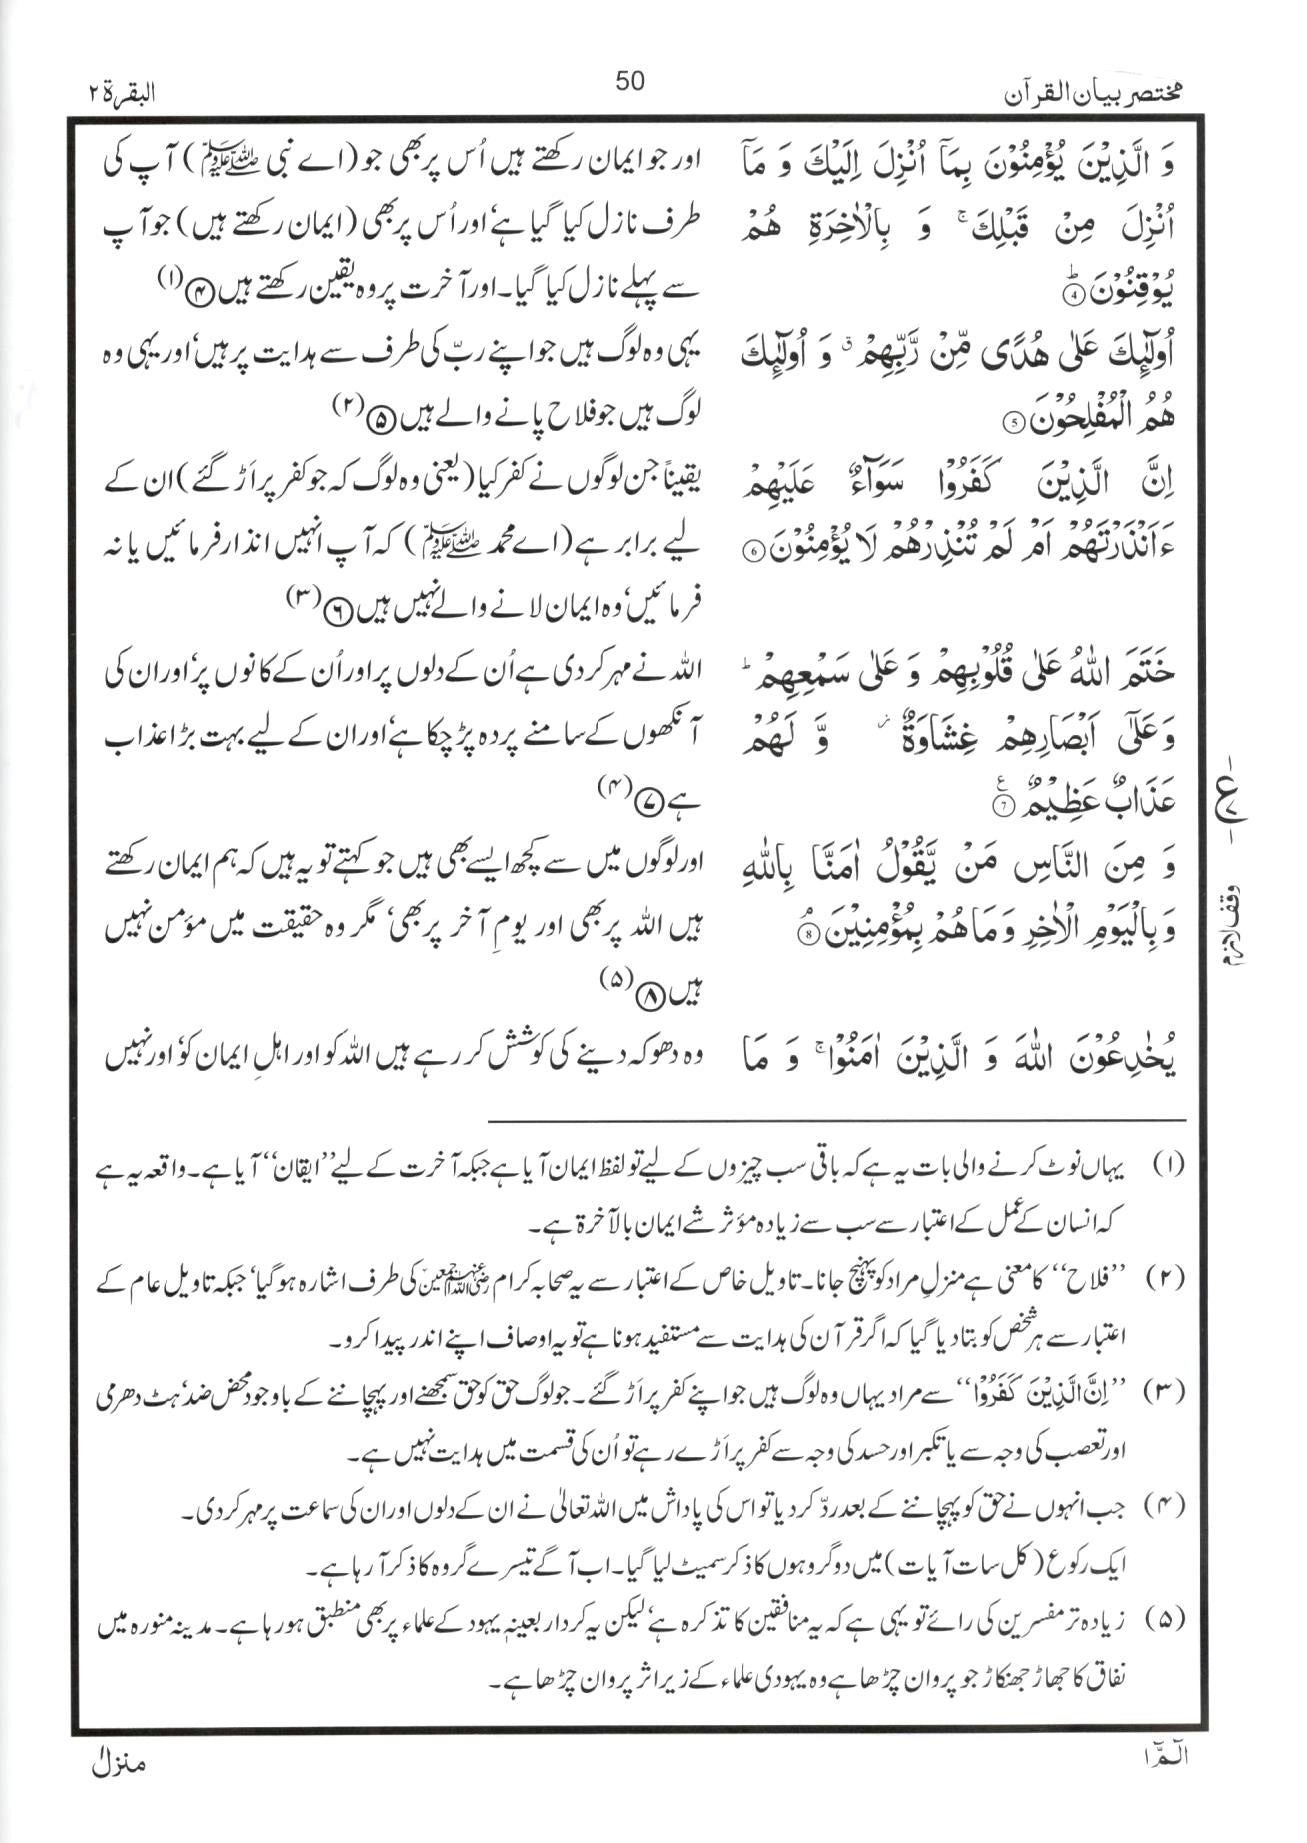 مختصر بیان القرآن
50
البقرۃ ۲
وَ الَّذِیْنَ یُؤْمِنُوْنَ بِمَاۤ اُنْزِلَ اِلَیْكَ وَ مَاۤ
اُنْزِلَ مِنْ قَبْلِكَ ۚ وَ بِالْاٰخِرَةِ هُمْ
یُوْقِنُوْنَ ؕ ④
اُولٰٓىِٕكَ عَلٰى هُدًى مِّنْ رَّبِّهِمْ ۗ وَ اُولٰٓىِٕكَ
هُمُ الْمُفْلِحُوْنَ ⑤
اِنَّ الَّذِیْنَ كَفَرُوْا سَوَآءٌ عَلَیْهِمْ
ءَاَنْذَرْتَهُمْ اَمْ لَمْ تُنْذِرْهُمْ لَا یُؤْمِنُوْنَ ⑥
خَتَمَ اللّٰهُ عَلٰى قُلُوْبِهِمْ وَ عَلٰى سَمْعِهِمْ ؕ
وَ عَلٰۤى اَبْصَارِهِمْ غِشَاوَةٌ ۫ وَّ لَهُمْ
عَذَابٌ عَظِیْمٌ ۧ ⑦
وَ مِنَ النَّاسِ مَنْ یَّقُوْلُ اٰمَنَّا بِاللّٰهِ
وَ بِالْیَوْمِ الْاٰخِرِ وَ مَا هُمْ بِمُؤْمِنِیْنَ ۘ ⑧
یُخٰدِعُوْنَ اللّٰهَ وَ الَّذِیْنَ اٰمَنُوْا ۚ وَ مَا
اور جو ایمان رکھتے ہیں اُس پر بھی جو (اے نبی ﷺ) آپ کی
طرف نازل کیا گیا ہے‘ اور اُس پر بھی (ایمان رکھتے ہیں) جو آپ
سے پہلے نازل کیا گیا۔ اور آخرت پر وہ یقین رکھتے ہیں ۴ (۱)
یہی وہ لوگ ہیں جو اپنے ربّ کی طرف سے ہدایت پر ہیں‘ اور یہی وہ
لوگ ہیں جو فلاح پانے والے ہیں ۵ (۲)
یقیناً جن لوگوں نے کفر کیا (یعنی وہ لوگ کہ جو کفر پر اَڑ گئے) ان کے
لیے برابر ہے (اے محمد ﷺ) کہ آپ انہیں انذار فرمائیں یا نہ
فرمائیں‘ وہ ایمان لانے والے نہیں ہیں ۶ (۳)
اللہ نے مہر کر دی ہے اُن کے دلوں پر اور اُن کے کانوں پر‘ اور ان کی
آنکھوں کے سامنے پردہ پڑ چکا ہے‘ اور ان کے لیے بہت بڑا عذاب
ہے ۷ (۴)
اور لوگوں میں سے کچھ ایسے بھی ہیں جو کہتے تو یہ ہیں کہ ہم ایمان رکھتے
ہیں اللہ پر بھی اور یومِ آخر پر بھی‘ مگر وہ حقیقت میں مؤمن نہیں
ہیں ۸ (۵)
وہ دھوکہ دینے کی کوشش کر رہے ہیں اللہ کو اور اہلِ ایمان کو‘ اور نہیں
ع
وقف لازم
(۱) یہاں نوٹ کرنے والی بات یہ ہے کہ باقی سب چیزوں کے لیے تو لفظ ایمان آیا ہے جبکہ آخرت کے لیے ’’ایقان‘‘ آیا ہے۔ واقعہ یہ ہے
کہ انسان کے عمل کے اعتبار سے سب سے زیادہ مؤثر شے ایمان بالآخرۃ ہے۔
(۲) ’’فلاح‘‘ کا معنی ہے منزلِ مراد کو پہنچ جانا۔ تاویل خاص کے اعتبار سے یہ صحابہ کرام رضی اللہ عنہم اجمعین کی طرف اشارہ ہو گیا‘ جبکہ تاویل عام کے
اعتبار سے ہر شخص کو بتا دیا گیا کہ اگر قرآن کی ہدایت سے مستفید ہونا ہے تو یہ اوصاف اپنے اندر پیدا کرو۔
(۳) ’’اِنَّ الَّذِیْنَ كَفَرُوْا‘‘ سے مراد یہاں وہ لوگ ہیں جو اپنے کفر پر اَڑ گئے۔ جو لوگ حق کو حق سمجھنے اور پہچاننے کے باوجود محض ضد‘ ہٹ دھرمی
اور تعصب کی وجہ سے یا تکبر اور حسد کی وجہ سے کفر پر اَڑے رہے تو اُن کی قسمت میں ہدایت نہیں ہے۔
(۴) جب انہوں نے حق کو پہچاننے کے بعد ردّ کر دیا تو اس کی پاداش میں اللہ تعالیٰ نے ان کے دلوں اور ان کی سماعت پر مہر کر دی۔
ایک رکوع (کل سات آیات) میں دو گروہوں کا ذکر سمیٹ لیا گیا۔ اب آگے تیسرے گروہ کا ذکر آ رہا ہے۔
(۵) زیادہ تر مفسرین کی رائے تو یہی ہے کہ یہ منافقین کا تذکرہ ہے‘ لیکن یہ کردار بعینہٖ یہود کے علماء پر بھی منطبق ہو رہا ہے۔ مدینہ منورہ میں
نفاق کا جھاڑ جھنکاڑ جو پروان چڑھا ہے وہ یہودی علماء کے زیر اثر پروان چڑھا ہے۔
الٓمّٓ ۱
منزل ۱